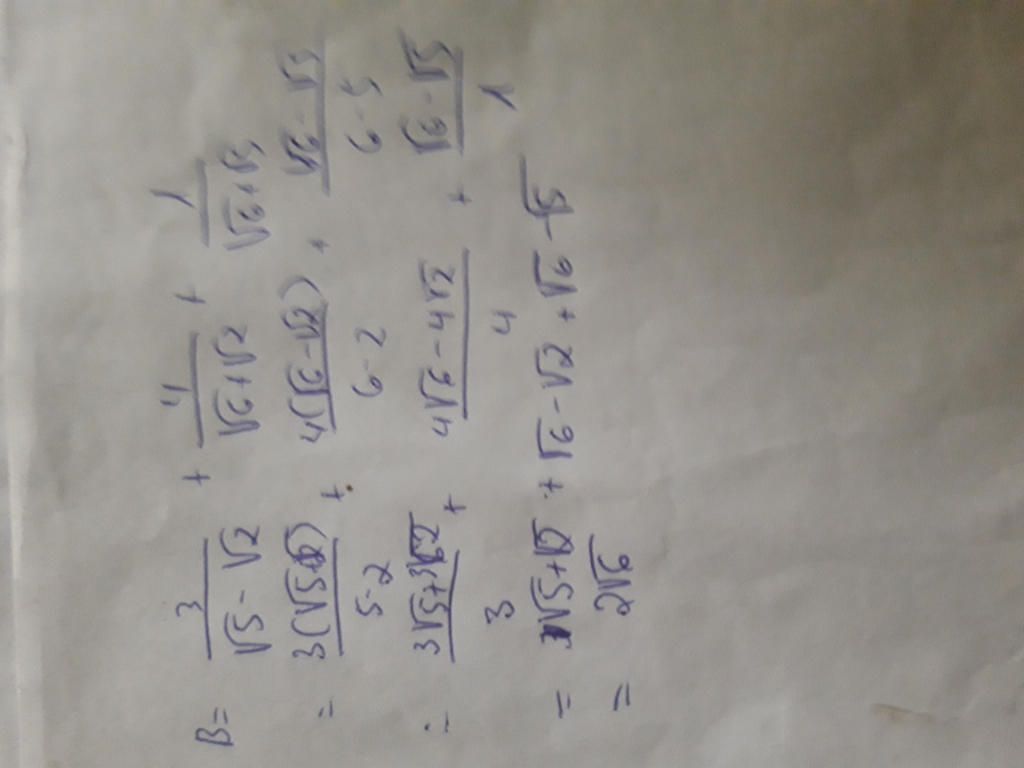 B = 3/(√5 - √2) + 4/(√6+√2) + 1/(√6+√5)
= 3(√5+√2)/(5-2) + 4(√6-√2)/(6-2) + (√6-√5)/(6-5)
= (3√5+3√2)/3 + (4√6-4√2)/4 + (√6-√5)/1
= √5+√2 + √6-√2+√6-√5
= 2√6